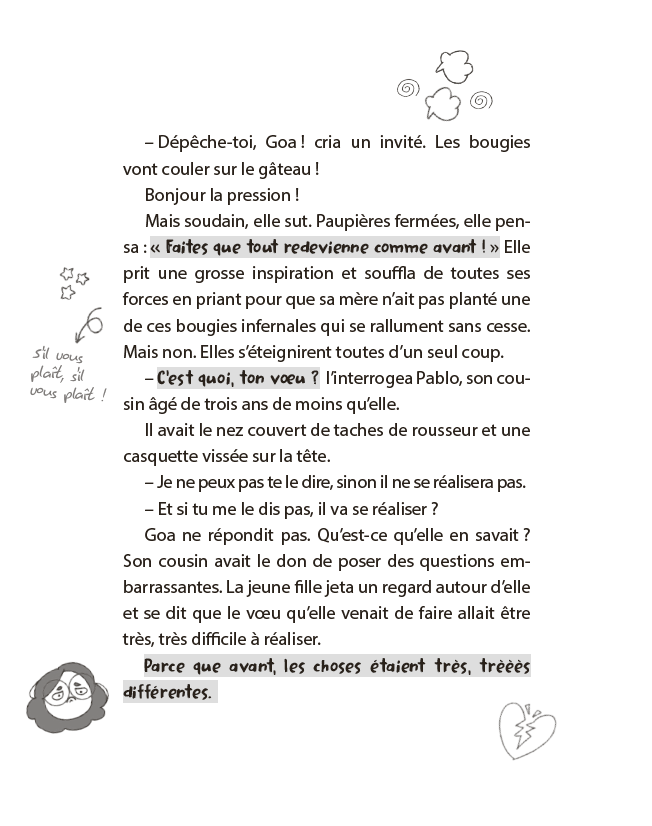 – Dépêche-toi, Goa ! cria un invité. Les bougies
vont couler sur le gâteau !
Bonjour la pression !
Mais soudain, elle sut. Paupières fermées, elle pen-
sa : « Faites que tout redevienne comme avant ! » Elle
prit une grosse inspiration et souffla de toutes ses
forces en priant pour que sa mère n’ait pas planté une
de ces bougies infernales qui se rallument sans cesse.
Mais non. Elles s’éteignirent toutes d’un seul coup.
s'il vous
plaît, s'il
vous plaît !
– C'est quoi, ton vœu ? l’interrogea Pablo, son cou-
sin âgé de trois ans de moins qu’elle.
Il avait le nez couvert de taches de rousseur et une
casquette vissée sur la tête.
– Je ne peux pas te le dire, sinon il ne se réalisera pas.
– Et si tu me le dis pas, il va se réaliser ?
Goa ne répondit pas. Qu’est-ce qu’elle en savait ?
Son cousin avait le don de poser des questions em-
barrassantes. La jeune fille jeta un regard autour d’elle
et se dit que le vœu qu’elle venait de faire allait être
très, très difficile à réaliser.
Parce que avant, les choses étaient très, trèèès
différentes.